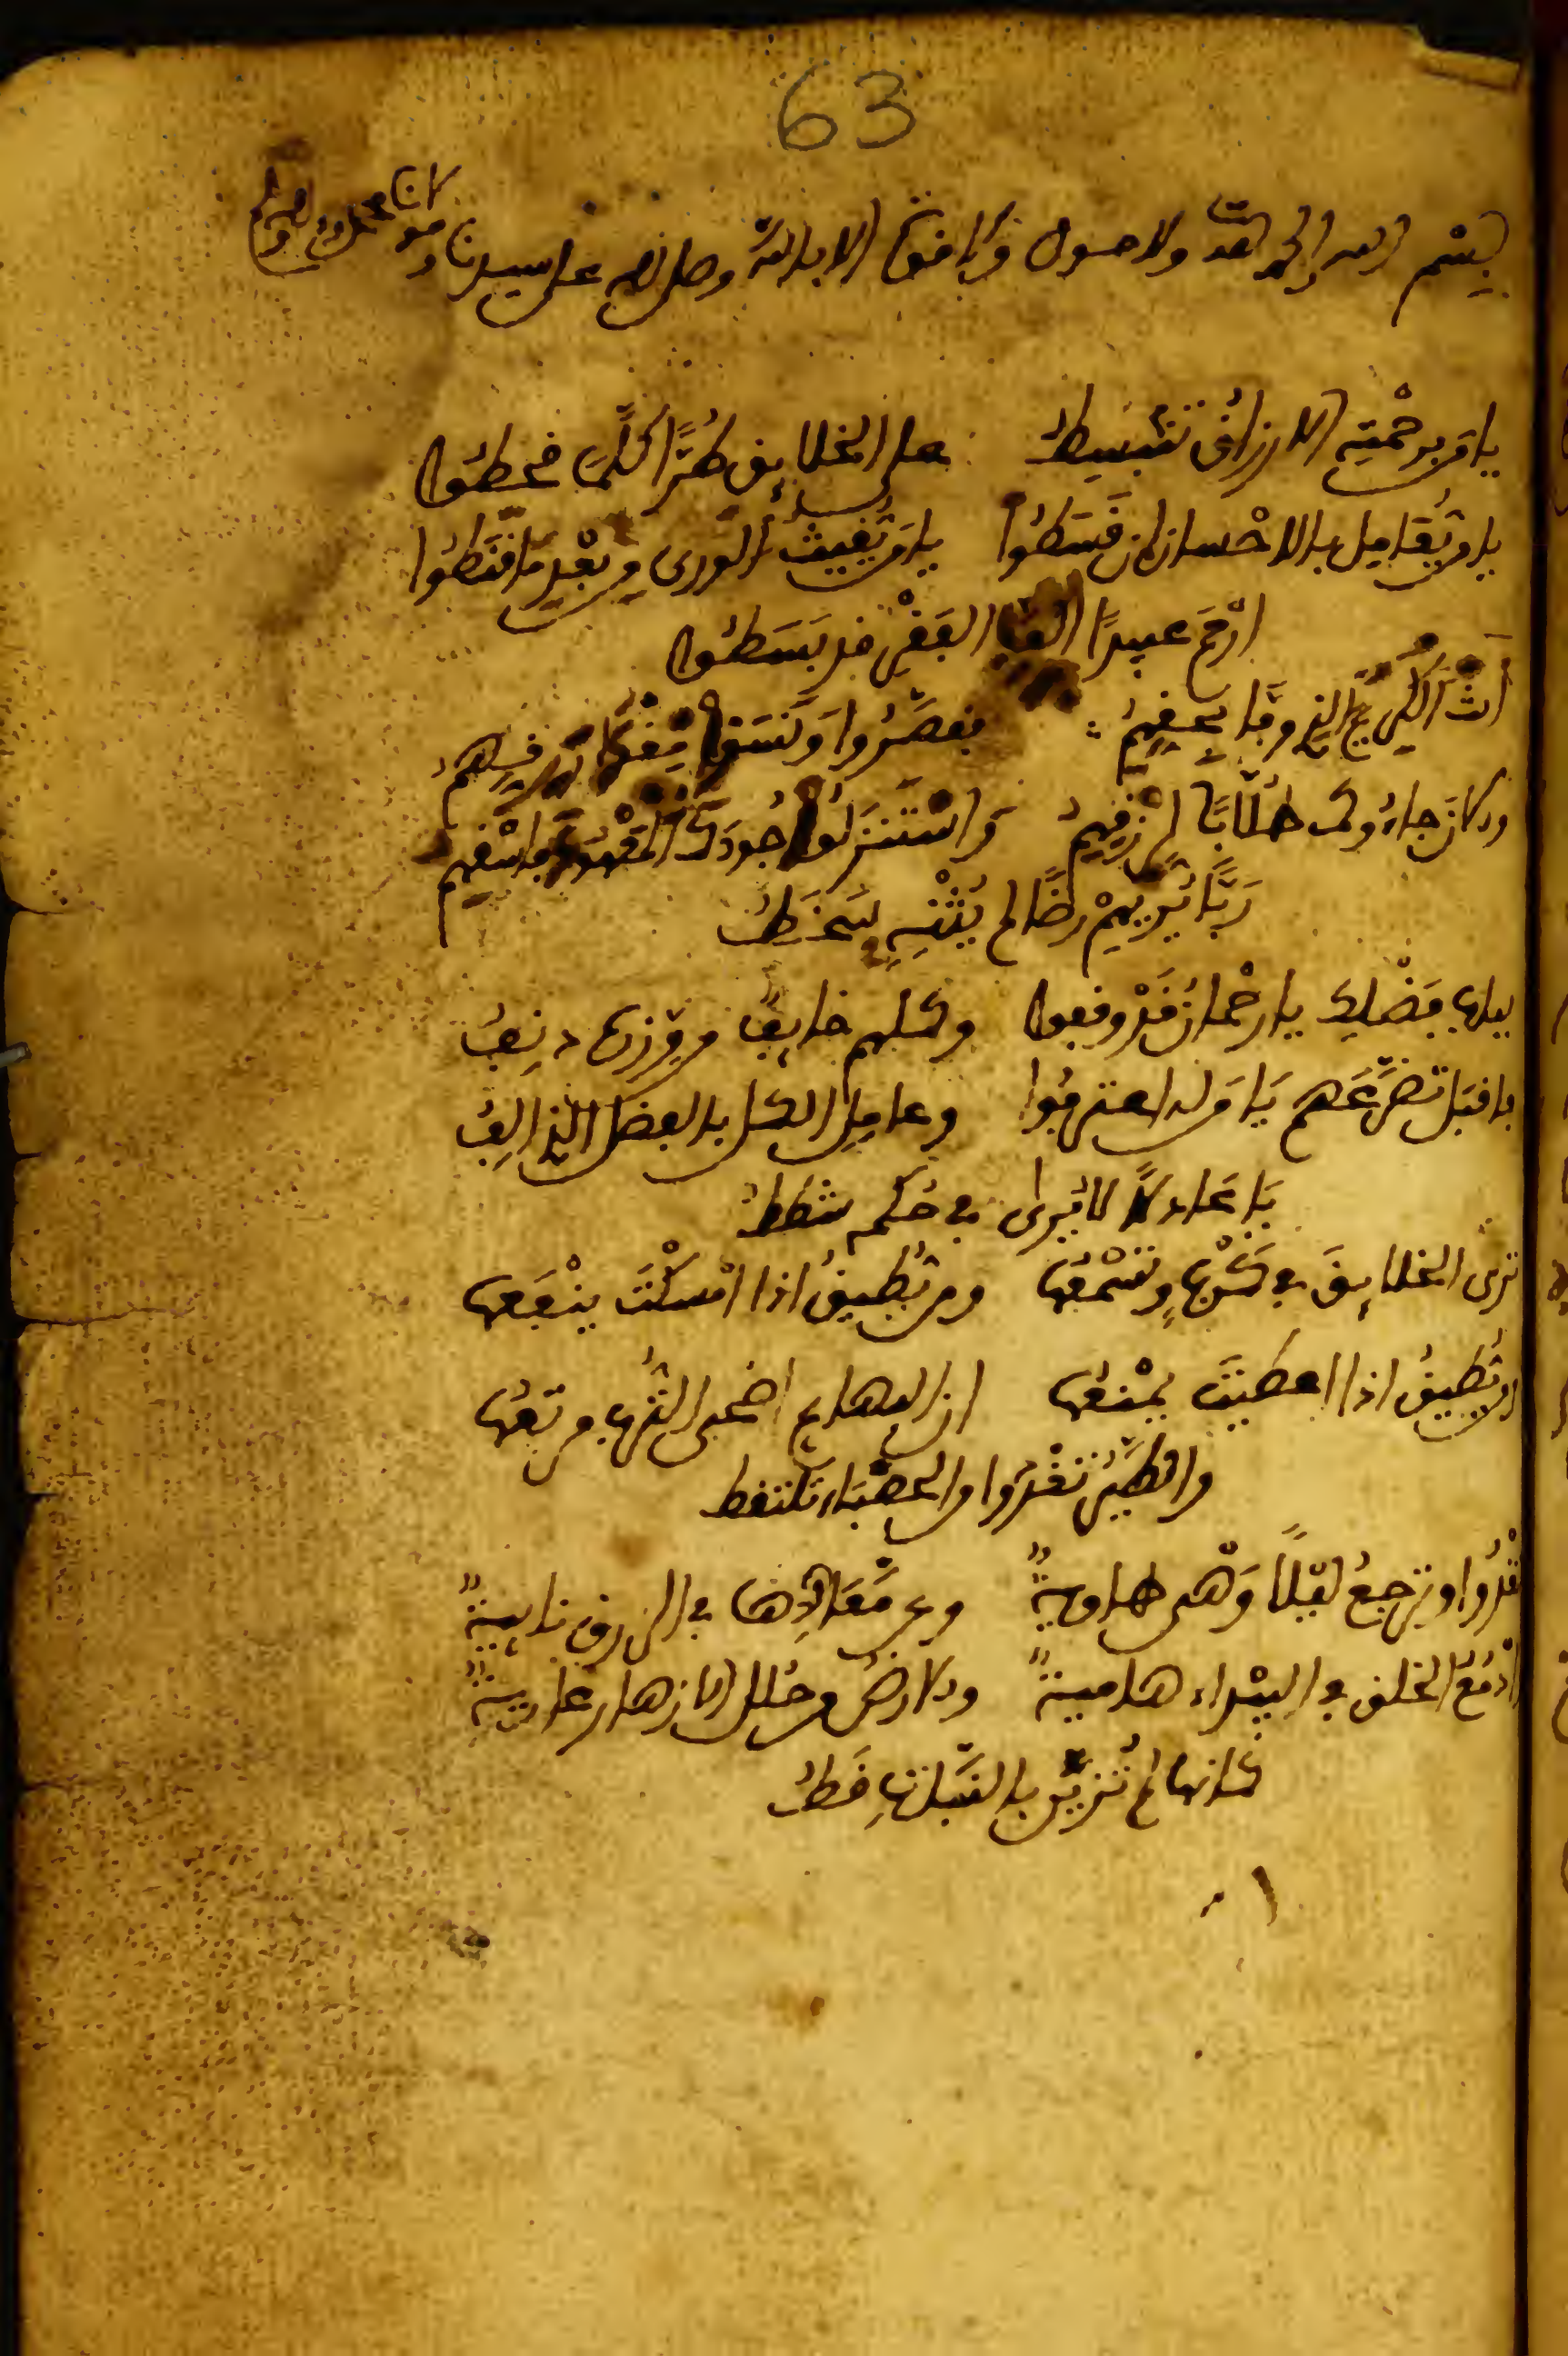 63
بسم الله الحمد لله ولا حول ولا قوة الا بالله وصلى الله على سيدنا ومولانا محمد
يا من برحمته الارزاق تنبسط على الخلايق طرًّا كلما قحطوا
يا من يُعامل بالاحسان ان قسطوا يا من يغيث الورى من بعد ما قنطوا
ارحم عبيدًا اكف الفقر قد بسطوا
انت الكريم الذى وفّا بحقهم فقصّروا ونسوا
وكان جاءوك طلابًا لرزقهم واستنزلوا جودك المعهود فاسقهم
ربًّا يُريهم رضًا لم يُثنه سخط
بباب فضلك يا رحمان قد وقفوا وكلهم خايف من وزرها دنف
فاقبل تضرعهم يا من له اعترفوا وعامل الكل بالفضل الذى الف
يا عادلا لا يرى في حكمه شطط
ترى الخلايق في كربها وتسمعها ومن يُطيق اذا امسكت ينفعها
ومن يُطيق اذا اعطيت يمنعها ان البهايم اضحى الترب مرتعها
والطير تغدوا والحصباء تلتقط
تغدوا وترجع ليلا وهى طاوية وعن معادلها في الرزق نابية
وادمع الخلق في البيداء هامية والارض من حلل الازهار عارية
كانها لم تزين بالنبات قط